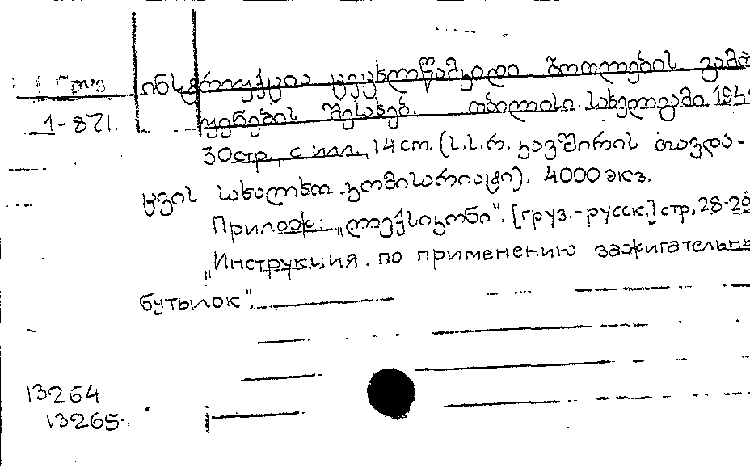 Груз ინსტრუქცია ცეცხლწამკიდი ბოთლების გამო
1-871. ყენების შესახებ. თბილისი. სახელგამი. 194
30стр. с илл., 14cm. (ს.ს.რ. კავშირის თავდა-
ცვის სახალხო კომისარიატი). 4000 экз.
Прилож: „ლექსიკონი". [груз.-русск.] стр. 28-29
„Инструкция по применению зажигательн
бутылок".
13264
13265.